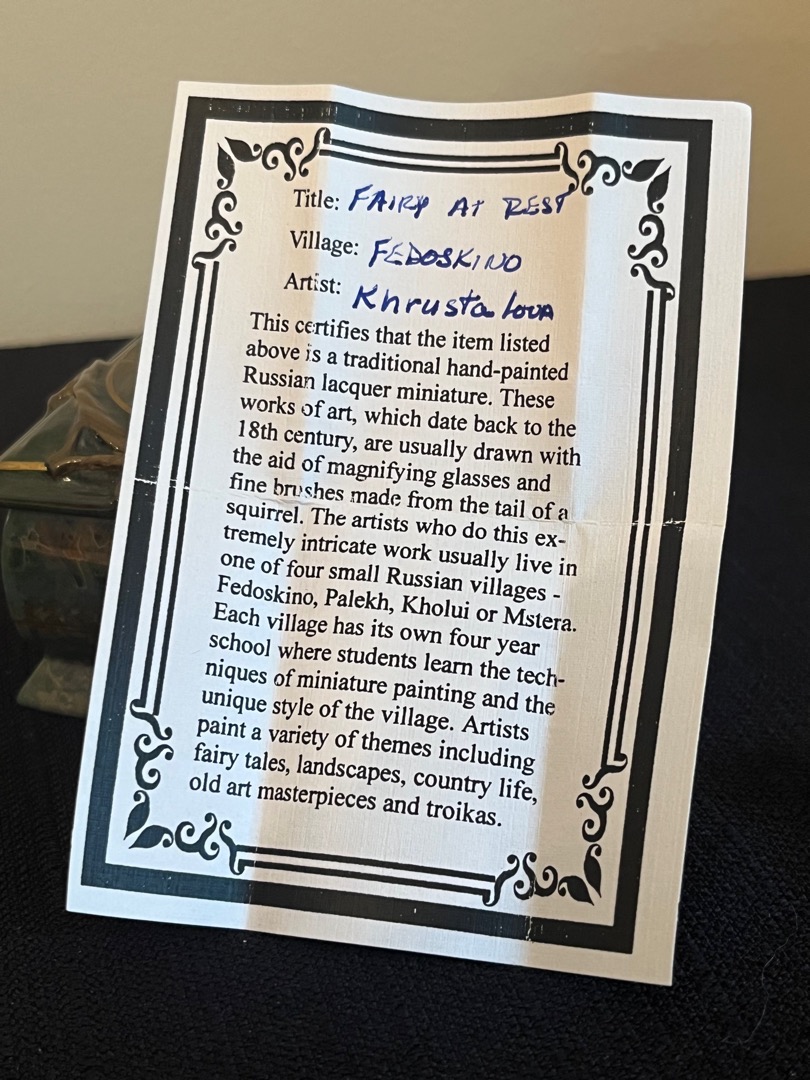 Title: FAIRY AT REST
Village: FEDOSKINO
Artist: Khrustalova
This certifies that the item listed
above is a traditional hand-painted
Russian lacquer miniature. These
works of art, which date back to the
18th century, are usually drawn with
the aid of magnifying glasses and
fine brushes made from the tail of a
squirrel. The artists who do this ex-
tremely intricate work usually live in
one of four small Russian villages -
Fedoskino, Palekh, Kholui or Mstera.
Each village has its own four year
school where students learn the tech-
niques of miniature painting and the
unique style of the village. Artists
paint a variety of themes including
fairy tales, landscapes, country life,
old art masterpieces and troikas.